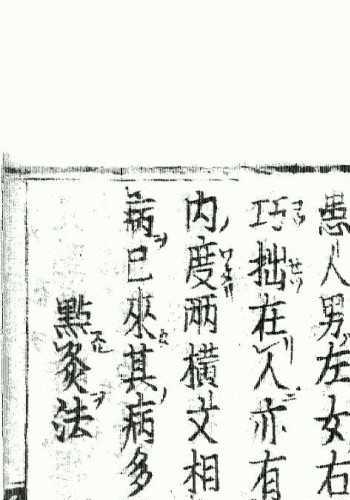 患人男左女右
巧拙在人亦有
内度兩橫文相
病已來其病多
點灸法